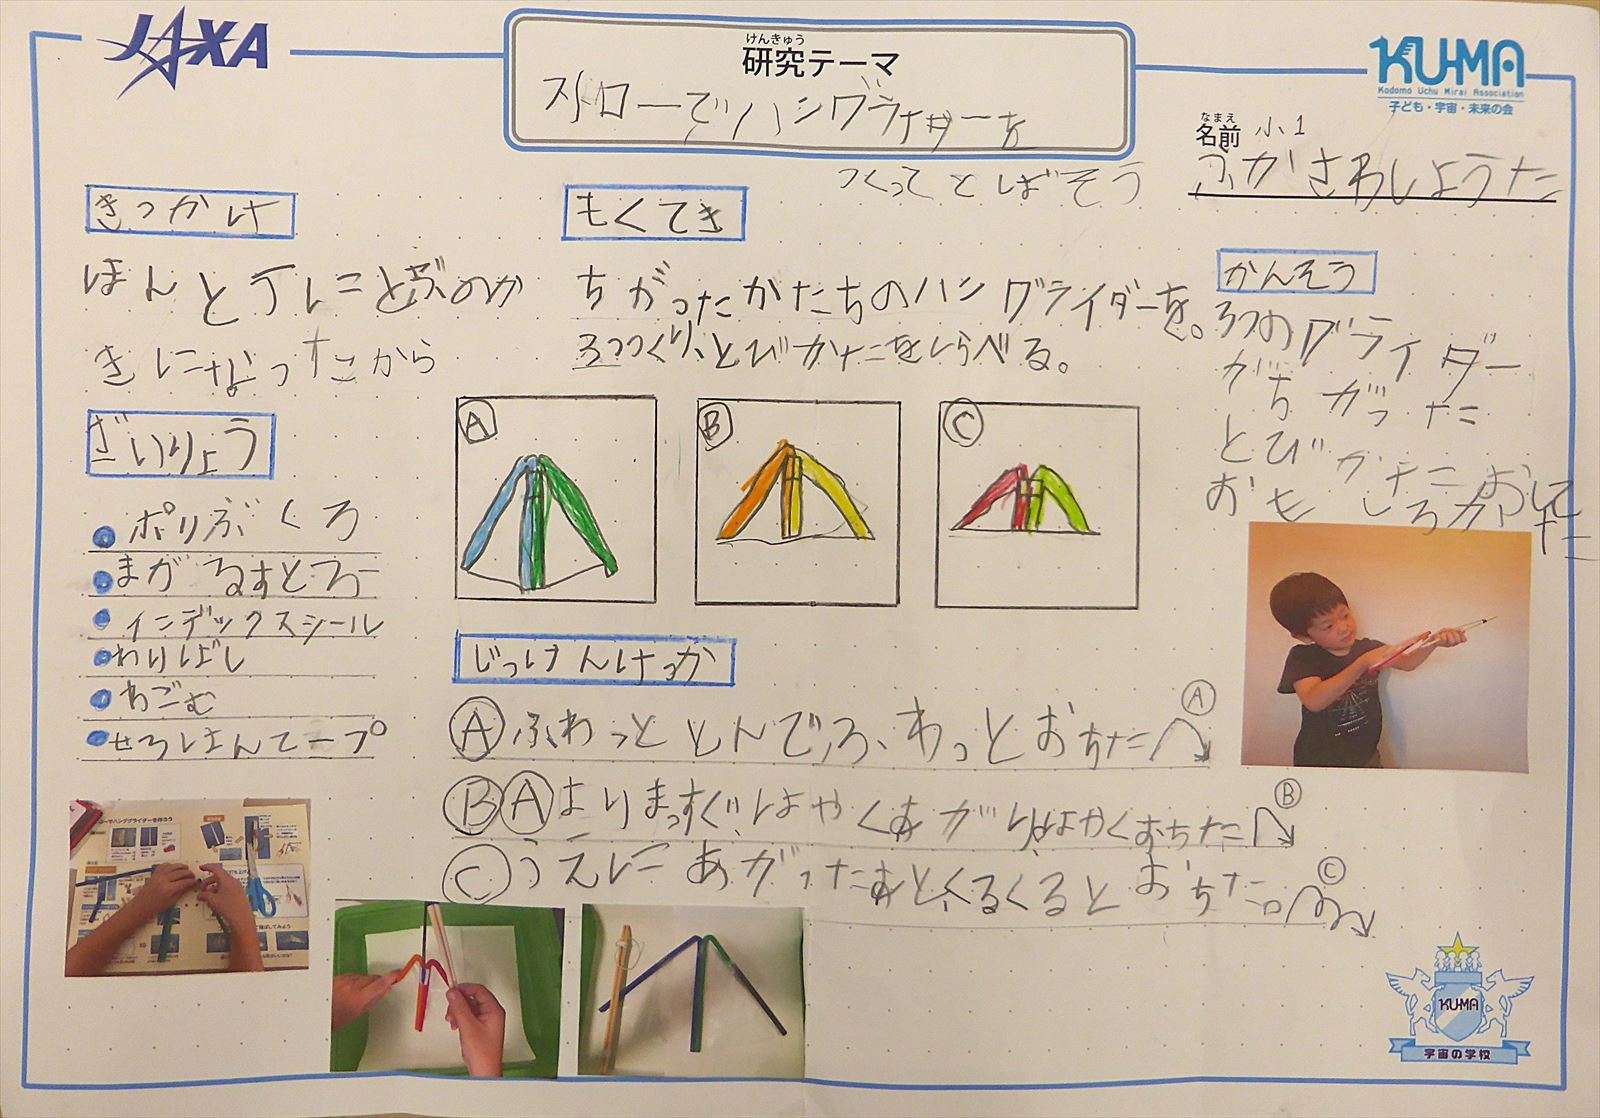 JAXA
けんきゅう
研究テーマ
ストローでハングライダーを
つくってとばそう
KUMA
Kodomo Uchu Mirai Association
子ども・宇宙・未来の会
なまえ
名前 小1
ふかさわしょうた
きっかけ
ほんとうにとぶのか
きになったから
ざいりょう
ポリぶくろ
まがるすとろー
インデックスシール
わりばし
わごむ
せろはんてープ
もくてき
ちがったかたちのハングライダーを。
3つつくり、とびかたをしらべる。
A
B
C
じっけんけっか
Ⓐふわっととんでふわっとおちた
A
ⒷⒶよりまっすぐ、はやくあがりはやくおちた
B
Ⓒうえにあがったあとくるくるとおちた。
C
かんそう
3つのグライダー
がちがった
とびかたにおして
おもしろかった
KUMA
宇宙の学校